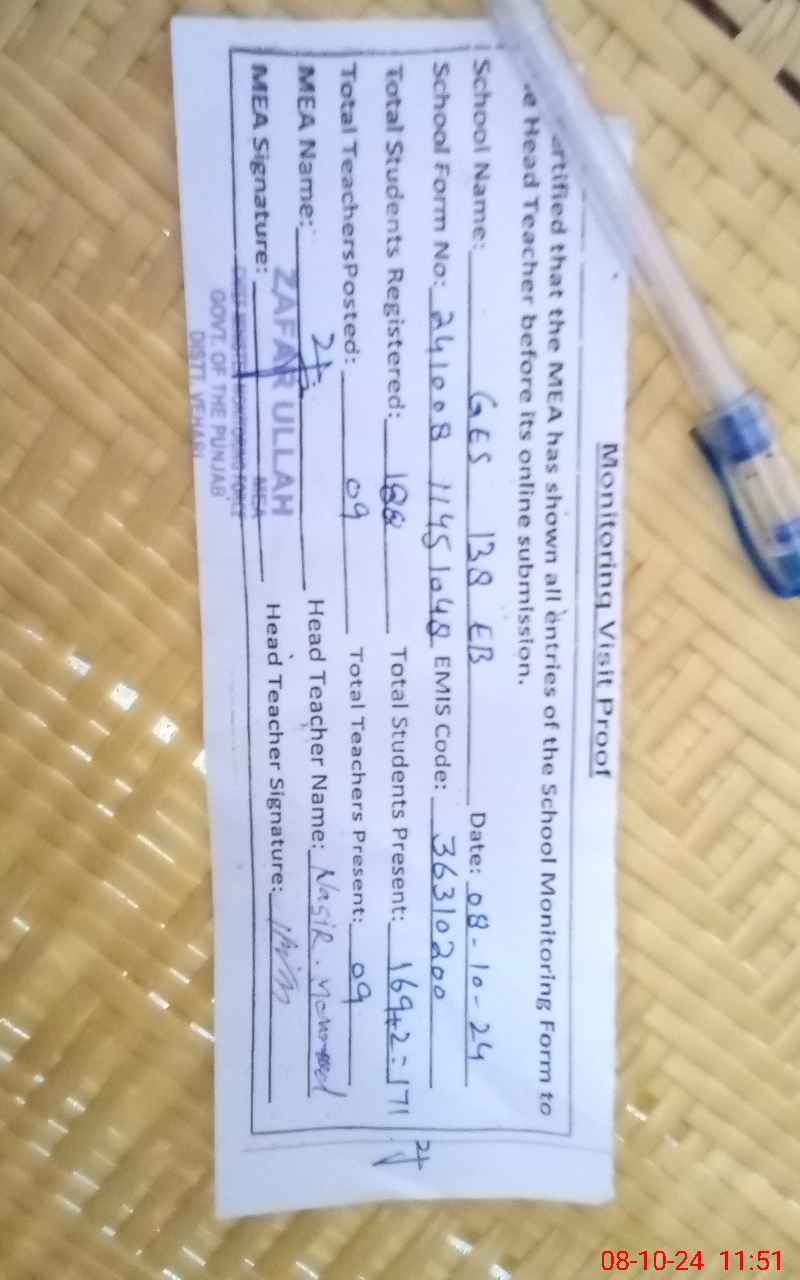 Monitoring Visit Proof
ertified that the MEA has shown all entries of the School Monitoring Form to
e Head Teacher before its online submission.
School Name: GES 138 EB Date: 08-10-24
School Form No: 241008 11451048 EMIS Code: 36310200
Total Students Registered: 188 Total Students Present: 169+2=171
Total TeachersPosted: 09 Total Teachers Present: 09
MEA Name: Head Teacher Name: Nasir
MEA Signature: Head Teacher Signature:
ZAFAR ULLAH
MEA
CHIEF MINISTER MONITORING FORCE
GOVT. OF THE PUNJAB
DISTT. VEHARI
08-10-24 11:51